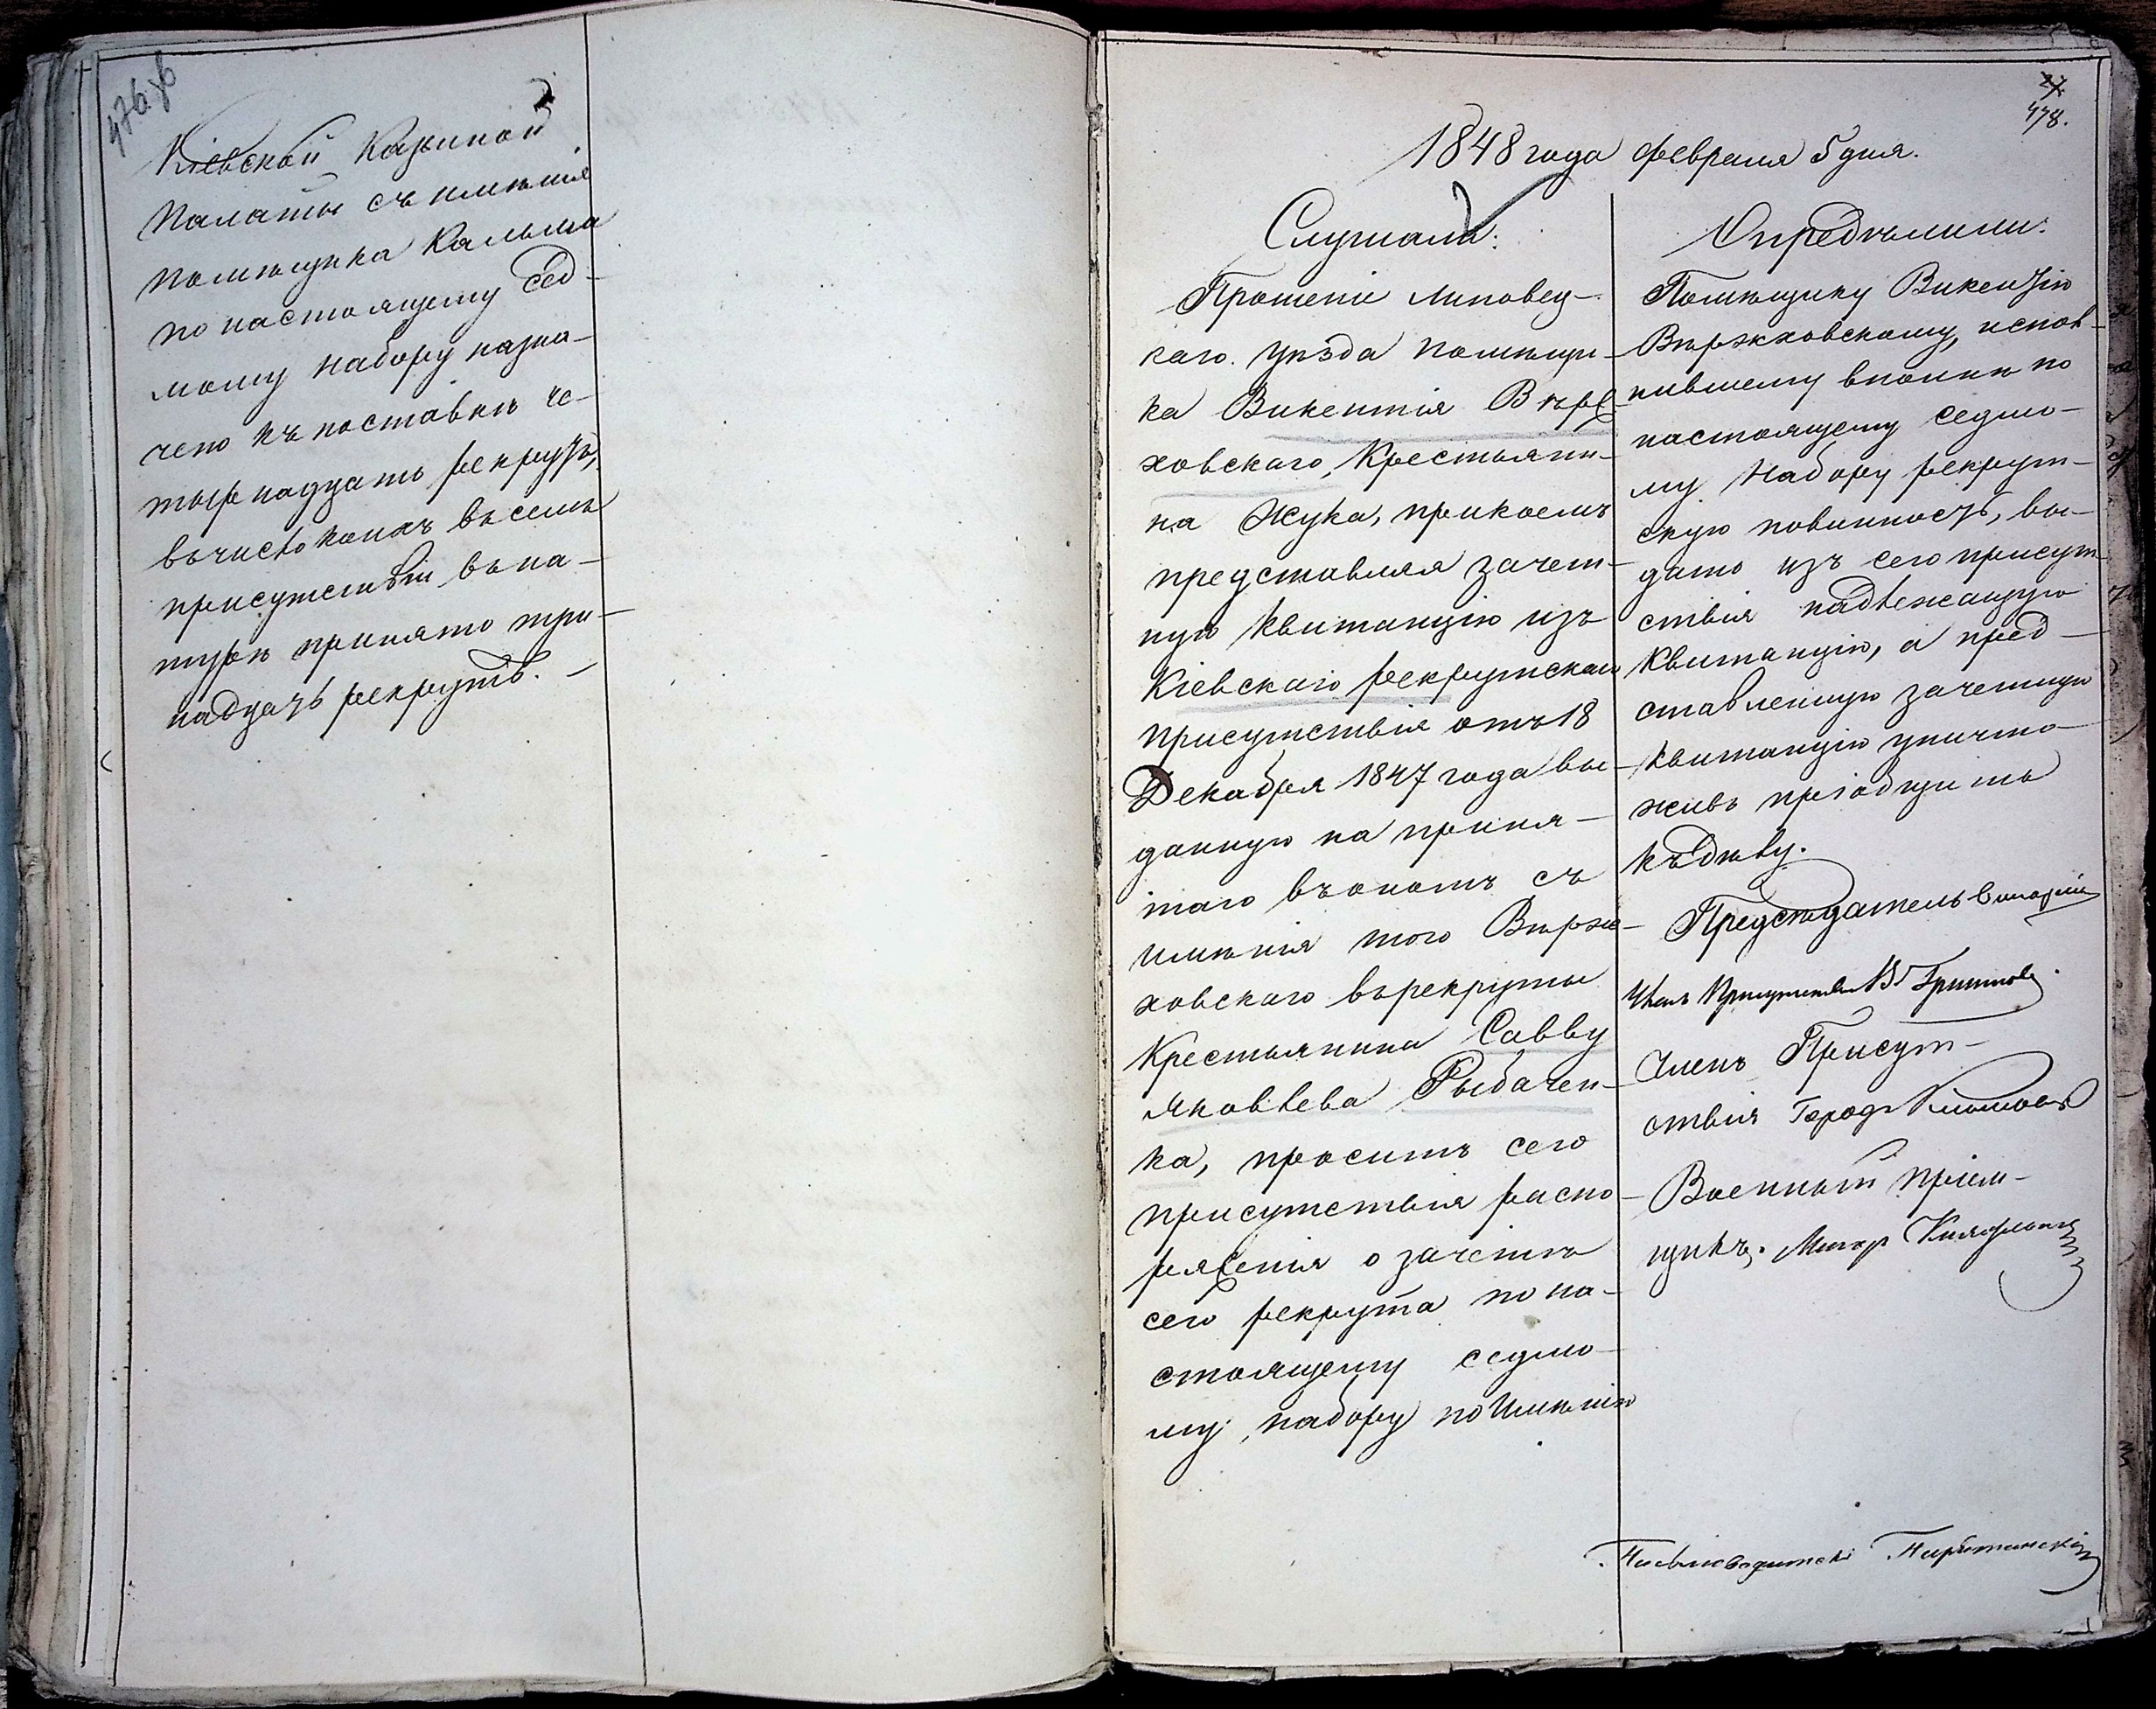 Кіевской Казенной
Палаты съ имѣнія
помѣщика Кальма
по настоящему сед-
мому набору назна-
чено къ поставкѣ че-
тырнадцать рекрутъ,
въ число коихъ въ семъ
присутствіи въ на-
турѣ принято три-
надцать рекрутъ. —
478.
1848 года февраля 5 дня.
Слушали:
Прошеніе Липовец-
каго уѣзда помѣщи-
ка Викентія Вѣрж-
ховскаго, Крестьяни-
на Жука, при коемъ
представляя зачет-
ную квитанцію изъ
Кіевскаго рекрутскаго
присутствія отъ 18
Декабря 1847 года вы-
данную на приня-
таго въ ономъ съ
имѣнія того Вѣрж-
ховскаго въ рекруты
Крестьянина Савву
Яковлева Рыбачен-
ка, проситъ сего
присутствія распо-
ряженія о зачетѣ
сего рекрута по на-
стоящему седмо-
му набору по Имѣнію
Опредѣлили:
Помѣщику Викентію
Вѣржховскому, испол-
нившему вполнѣ по
настоящему седмо-
му Набору рекрут-
скую повинность, вы-
дать изъ сего присут-
ствія надлежащую
Квитанцію, а пред-
ставленную зачетную
квитанцію уничто-
живъ пріобщить
къ дѣлу.
Предсѣдатель
Членъ Присутствія
Членъ Присут-
ствія Город.
Военный пріем-
щикъ. Маіор
Письмоводитель